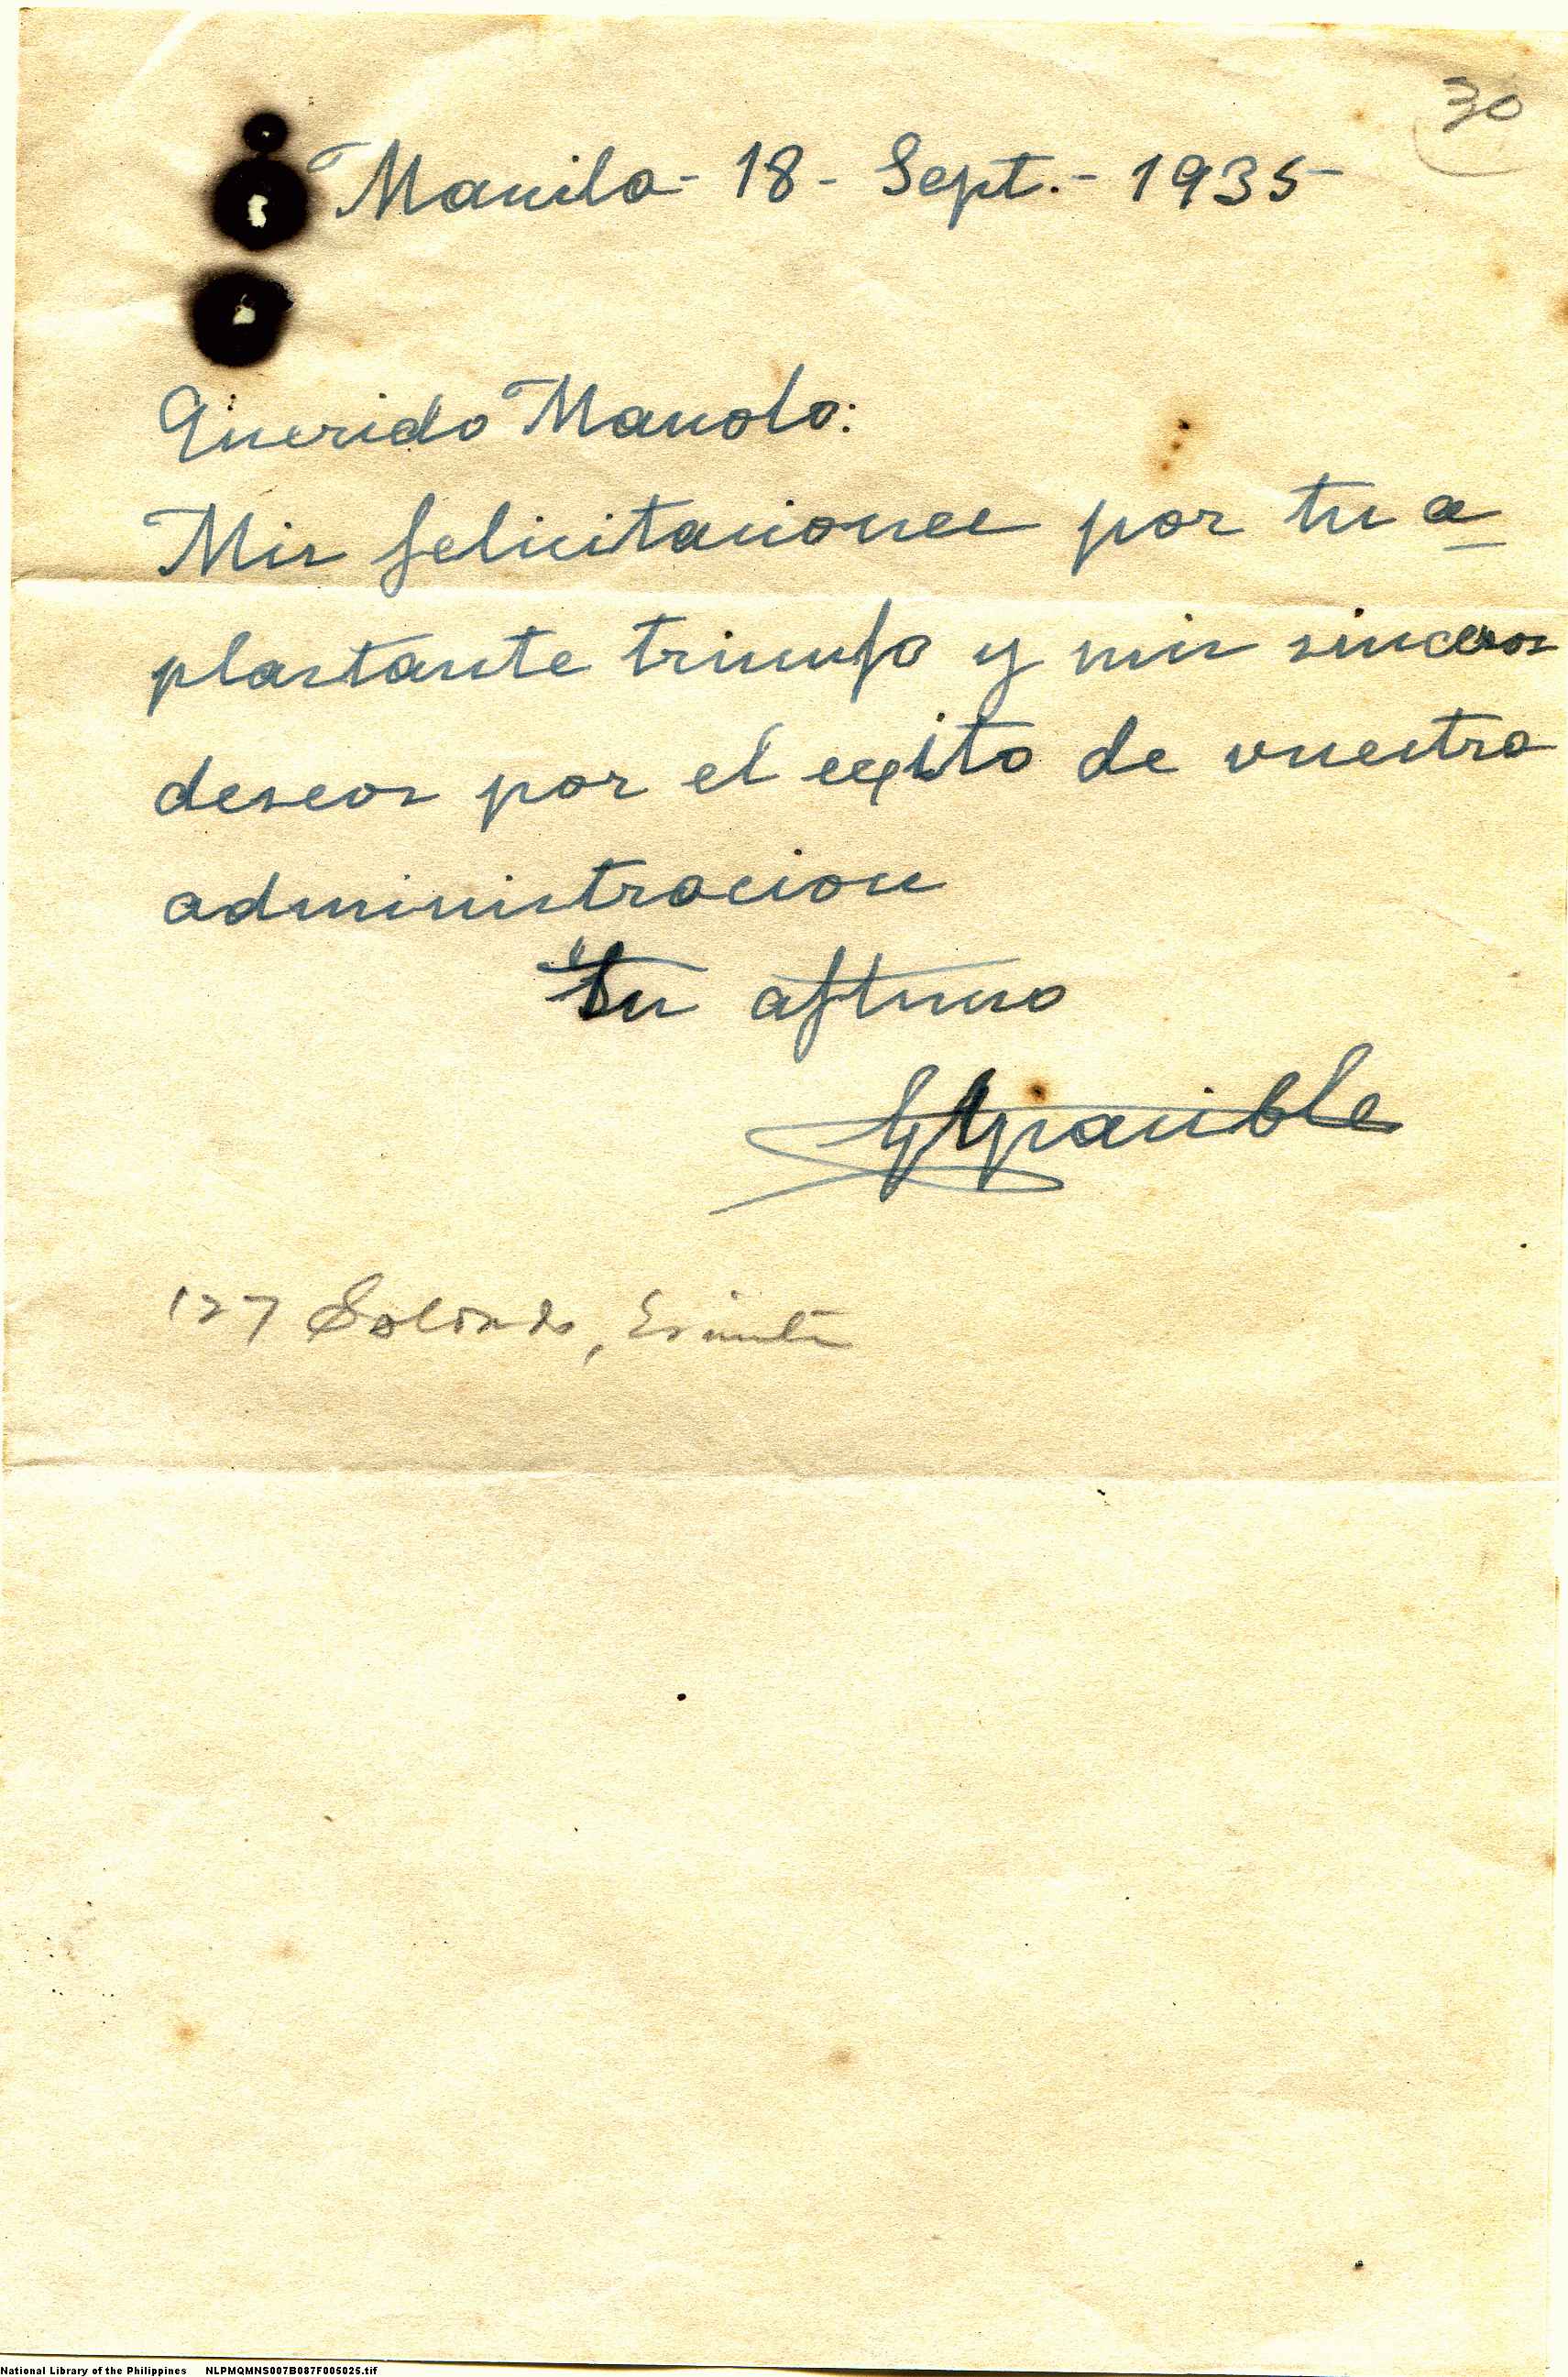 30
Manila - 18 - Sept. - 1935
Querido Manolo:
Mis felicitaciones por tu a
plastante triunfo y mis sinceros
deseos por el exito de vuestra
administracion
Tu aftmo
127 Solondo, Ermita
National Library of the Philippines NLPMQMNS007B087F005025.tif